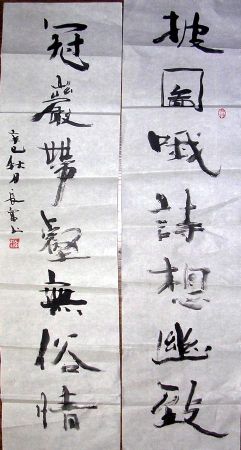 披圖哦詩想幽致
冠巖帶壑無俗情
辛巳秋月長